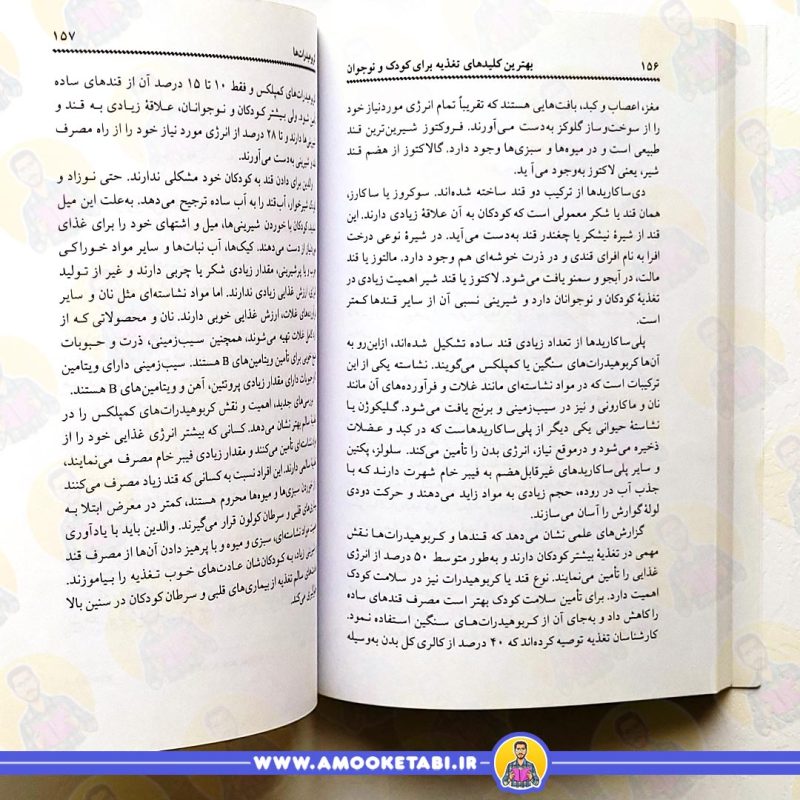 ۱۵۶ بهترین کلیدهای تغذیه برای کودک و نوجوان
مغز، اعصاب و کبد، بافت‌هایی هستند که تقریباً تمام انرژی موردنیاز خود
را از سوخت‌وساز گلوکز به‌دست می‌آورند. فروکتوز شیرین‌ترین قند
طبیعی است و در میوه‌ها و سبزی‌ها وجود دارد. گالاکتوز از هضم قند
شیر، یعنی لاکتوز به‌وجود می‌آ ید.
دی‌ساکاریدها از ترکیب دو قند ساخته شده‌اند. سوکروز یا ساکارز،
همان قند یا شکر معمولی است که کودکان به آن علاقهٔ زیادی دارند. این
قند از شیرهٔ نیشکر یا چغندر قند به‌دست می‌آید. در شیرهٔ نوعی درخت
افرا به نام افرای قندی و در ذرت خوشه‌ای هم وجود دارد. مالتوز یا قند
مالت، در آبجو و سمنو یافت می‌شود. لاکتوز یا قند شیر اهمیت زیادی در
تغذیهٔ کودکان و نوجوانان دارد و شیرینی نسبی آن از سایر قندها کمتر
است.
پلی‌ساکاریدها از تعداد زیادی قند ساده تشکیل شده‌اند، ازاین‌رو به
آن‌ها کربوهیدرات‌های سنگین یا کمپلکس می‌گویند. نشاسته یکی از این
ترکیبات است که در مواد نشاسته‌ای مانند غلات و فرآورده‌های آن مانند
نان و ماکارونی و نیز در سیب‌زمینی و برنج یافت می‌شود. گلیکوژن یا
نشاستهٔ حیوانی یکی دیگر از پلی‌ساکاریدهاست که در کبد و عضلات
ذخیره می‌شود و درموقع نیاز، انرژی بدن را تأمین می‌کند. سلولز، پکتین
و سایر پلی‌ساکاریدهای غیرقابل‌هضم به فیبر خام شهرت دارند که با
جذب آب در روده، حجم زیادی به مواد زاید می‌دهند و حرکت دودی
لولهٔ گوارش را آسان می‌سازند.
گزارش‌های علمی نشان می‌دهد که قندها و کربوهیدرات‌ها نقش
مهمی در تغذیهٔ بیشتر کودکان دارند و به‌طور متوسط ۵۰ درصد از انرژی
غذایی را تأمین می‌نمایند. نوع قند یا کربوهیدرات نیز در سلامت کودک
اهمیت دارد. برای تأمین سلامت کودک بهتر است مصرف قندهای ساده
را کاهش داد و به‌جای آن از کربوهیدرات‌های سنگین استفاده نمود.
کارشناسان تغذیه توصیه کرده‌اند که ۴۰ درصد از کالری کل بدن به‌وسیله
۱۵۷
کمپلکس و فقط ۱۰ تا ۱۵ درصد آن از قندهای ساده
شود. ولی بیشتر کودکان و نوجوانان، علاقهٔ زیادی به قند و
دارند و تا ۲۸ درصد از انرژی مورد نیاز خود را از راه مصرف
و شیرینی به‌دست می‌آورند.
والدین برای دادن قند به کودکان خود مشکلی ندارند. حتی نوزاد و
شیرخوار، آب‌قند را به آب ساده ترجیح می‌دهد. به‌علت این میل
کودکان با خوردن شیرینی‌ها، میل و اشتهای خود را برای غذای
از دست می‌دهند. کیک‌ها، آب نبات‌ها و سایر مواد خوراکی
و یا پرشیرینی، مقدار زیادی شکر یا چربی دارند و غیر از تولید
ارزش غذایی زیادی ندارند. اما مواد نشاسته‌ای مثل نان و سایر
غلات، ارزش غذایی خوبی دارند. نان و محصولاتی که از
غلات تهیه می‌شوند، همچنین سیب‌زمینی، ذرت و حبوبات
خوبی برای تأمین ویتامین‌های B هستند. سیب‌زمینی دارای ویتامین
حبوبات دارای مقدار زیادی پروتئین، آهن و ویتامین‌های B هستند.
جدید، اهمیت و نقش کربوهیدرات‌های کمپلکس را در
سالم بهتر نشان می‌دهد. کسانی که بیشتر انرژی غذایی خود را از
نشاسته‌ای تأمین می‌کنند و مقدار زیادی فیبر خام مصرف می‌نمایند،
سالمی دارند. این افراد نسبت به کسانی که قند زیاد مصرف می‌کنند
خوردن سبزی‌ها و میوه‌ها محروم هستند، کمتر در معرض ابتلا به
قلبی و سرطان کولون قرار می‌گیرند. والدین باید با یادآوری
مواد نشاسته‌ای، سبزی و میوه و با پرهیز دادن آن‌ها از مصرف قند
زیاد، به کودکان‌شان عادت‌های خوب تغذیه را بیاموزند.
سالم تغذیه از بیماری‌های قلبی و سرطان کودکان در سنین بالا
می‌کند.
WWW.AMOOKETABI.IR